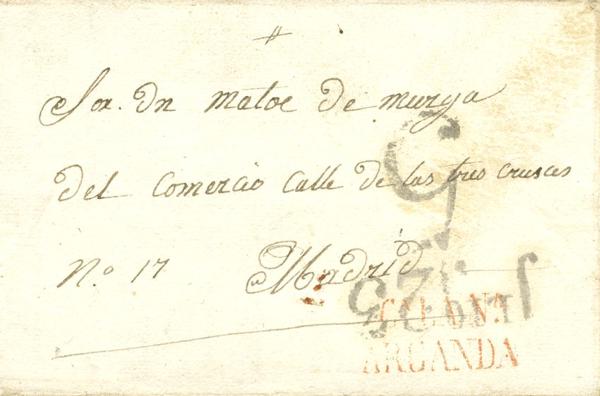 Sor. Dn Mateo de Murga
del Comercio Calle de las tres cruses
No. 17 Madrid
5
ARGANDA